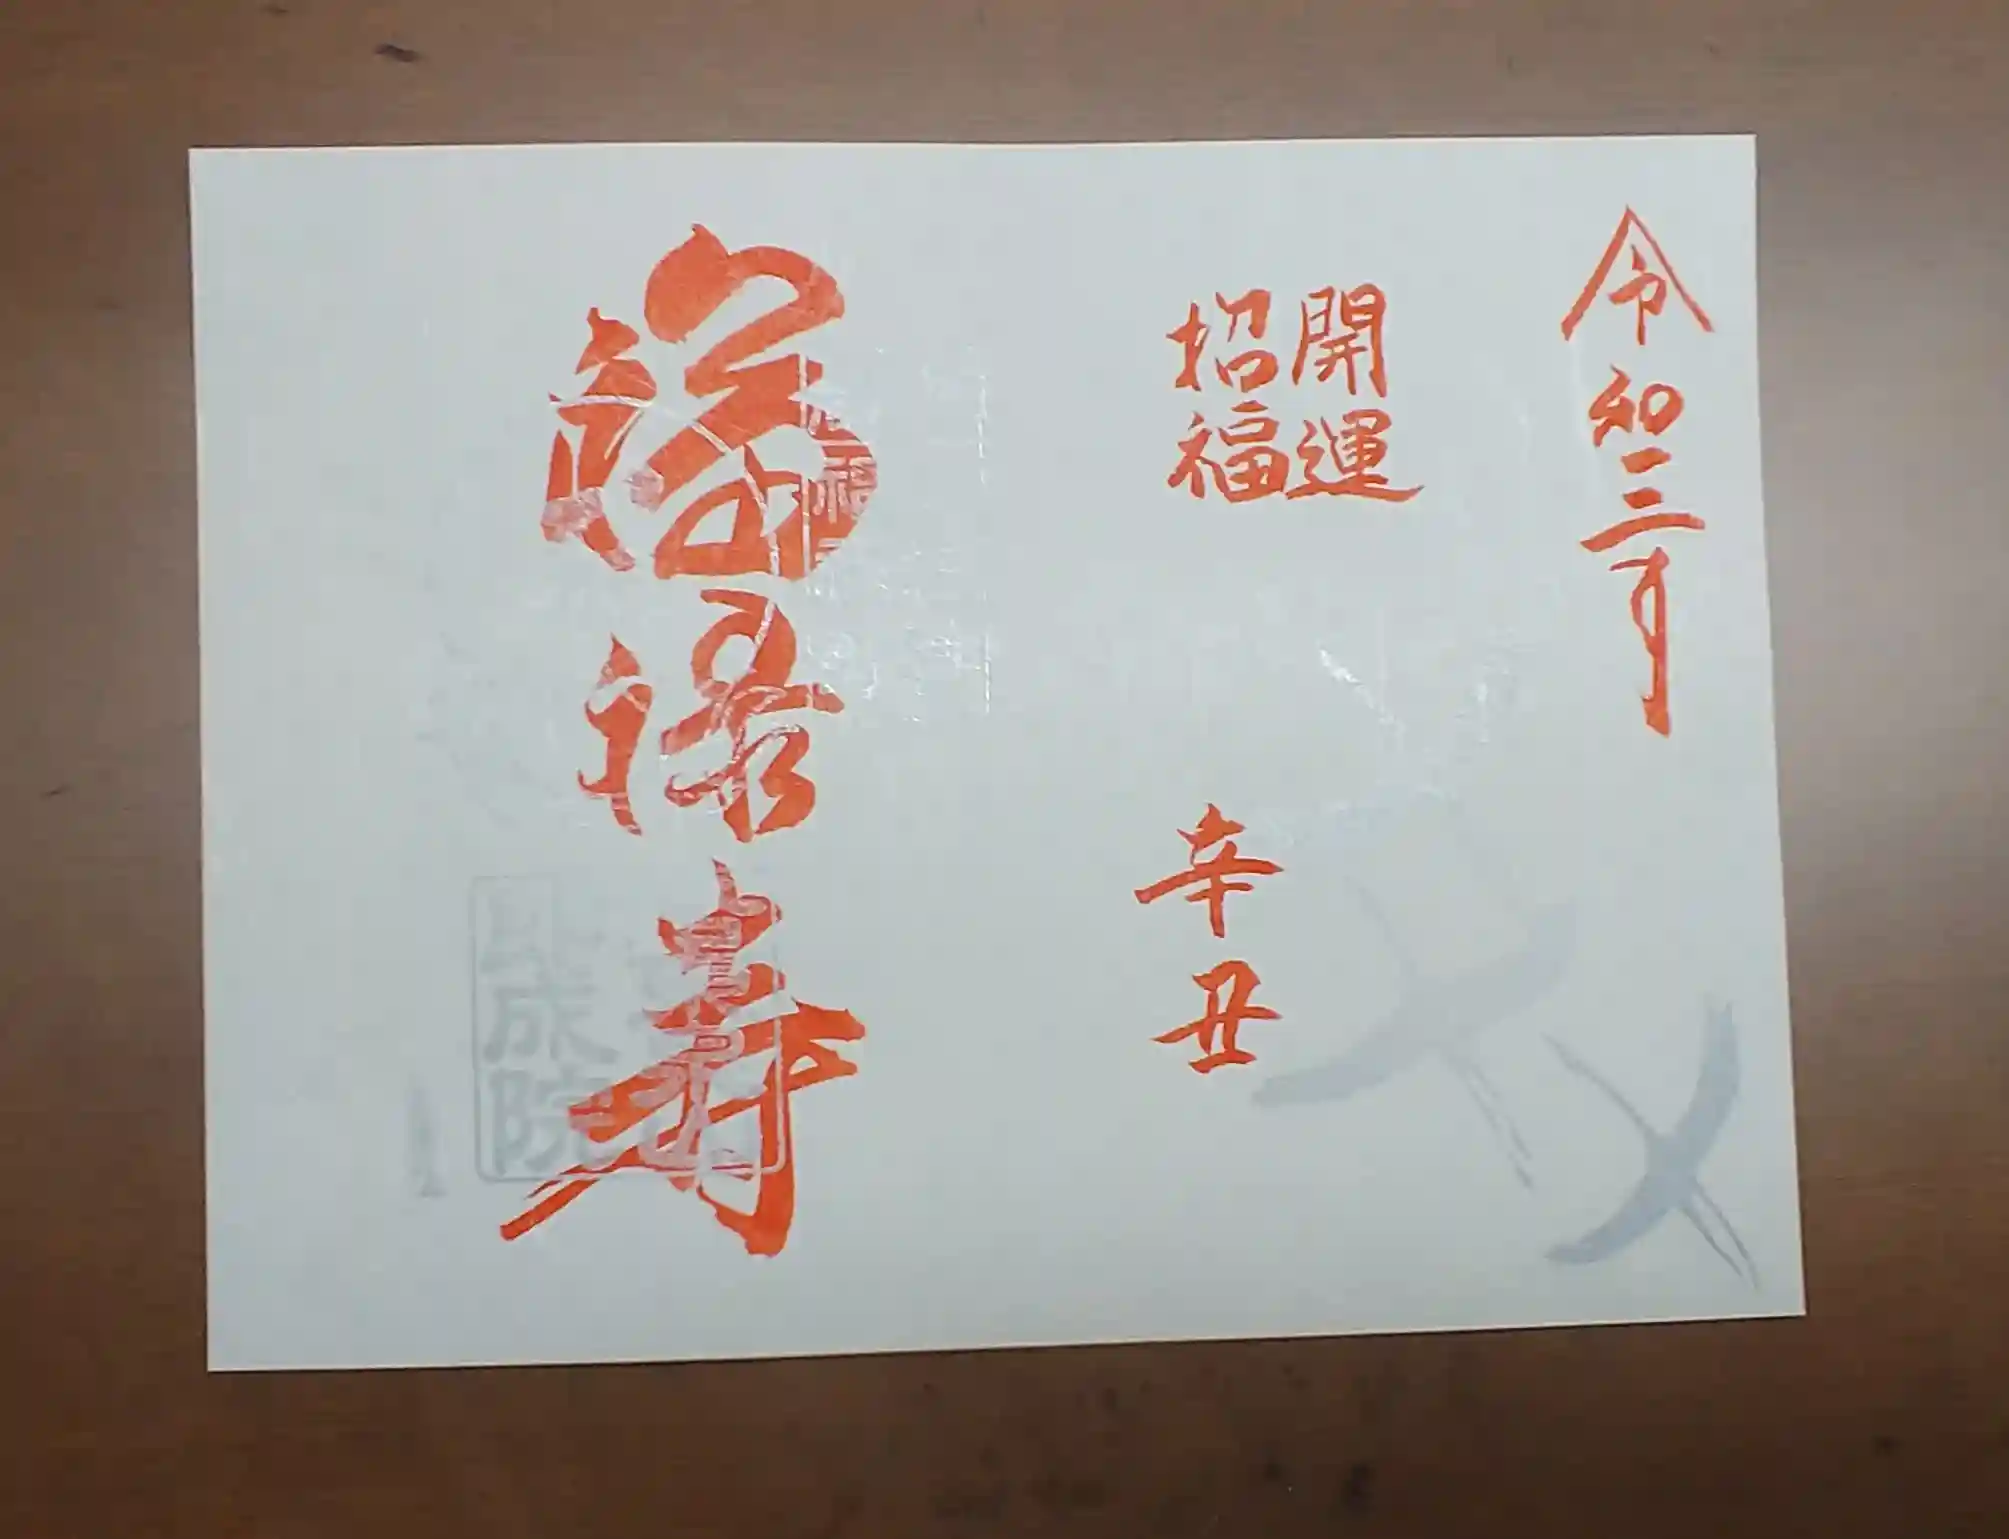 令和三月
開運
招福
辛丑
福禄寿
成院